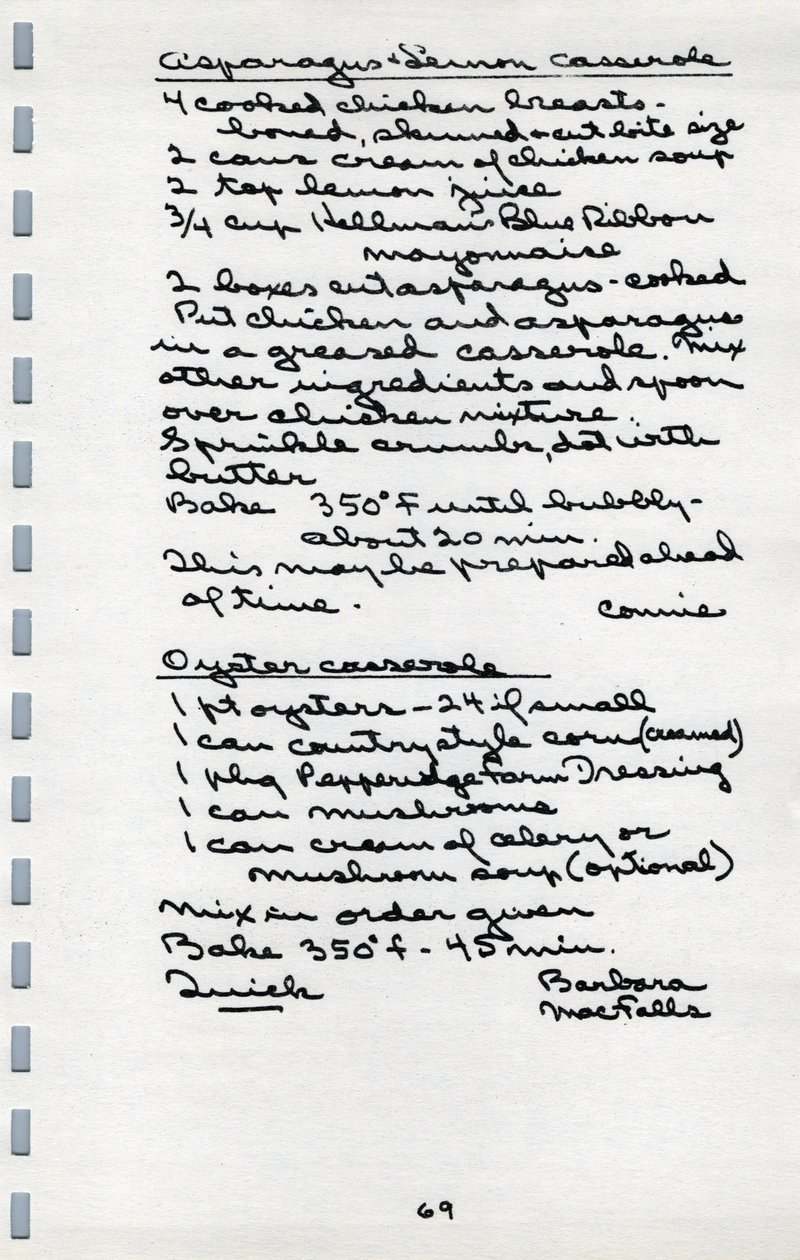 Asparagus + Lemon Casserole
4 cooked chicken breasts -
boned, skinned + cut bite size
2 cans cream of chicken soup
2 tsp lemon juice
3/4 cup Hellman's Blue Ribbon
mayonnaise
2 boxes cut asparagus - cooked
Put chicken and asparagus
in a greased casserole. Mix
other ingredients and spoon
over chicken mixture.
Sprinkle crumbs, dot with
butter
Bake 350° F until bubbly -
about 20 min.
This may be prepared ahead
of time.
Connie
Oyster casserole
1 pt oysters - 24 if small
1 can country style corn (creamed)
1 pkg Pepperidge Farm Dressing
1 can mushrooms
1 can cream of celery or
mushroom soup (optional)
Mix in order given
Bake 350° f - 45 min.
Quick
Barbara
MacFalls
69